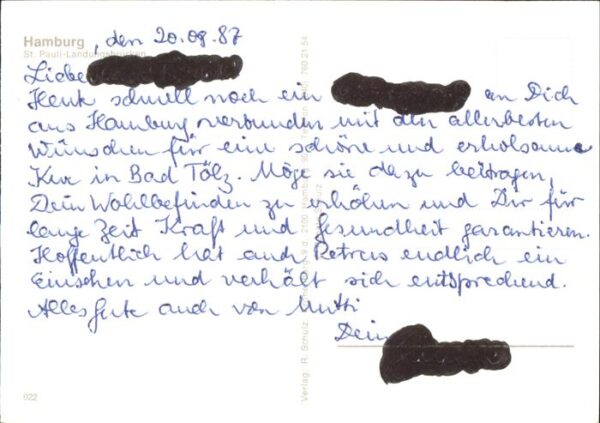 Hamburg, den 20.09.87
St. Pauli-Landungsbrücken
Liebe
Heut schnell noch ein an Dich
aus Hamburg verbunden mit den allerbesten
Wünschen für eine schöne und erholsame
Kur in Bad Tölz. Möge sie dazu beitragen,
Dein Wohlbefinden zu erhöhen und Dir für
lange Zeit Kraft und Gesundheit garantieren.
Hoffentlich hat auch Petrus endlich ein
Einsehen und verhält sich entsprechend.
Alles Gute auch von Mutti
Dein
Verlag R. Schulz
022